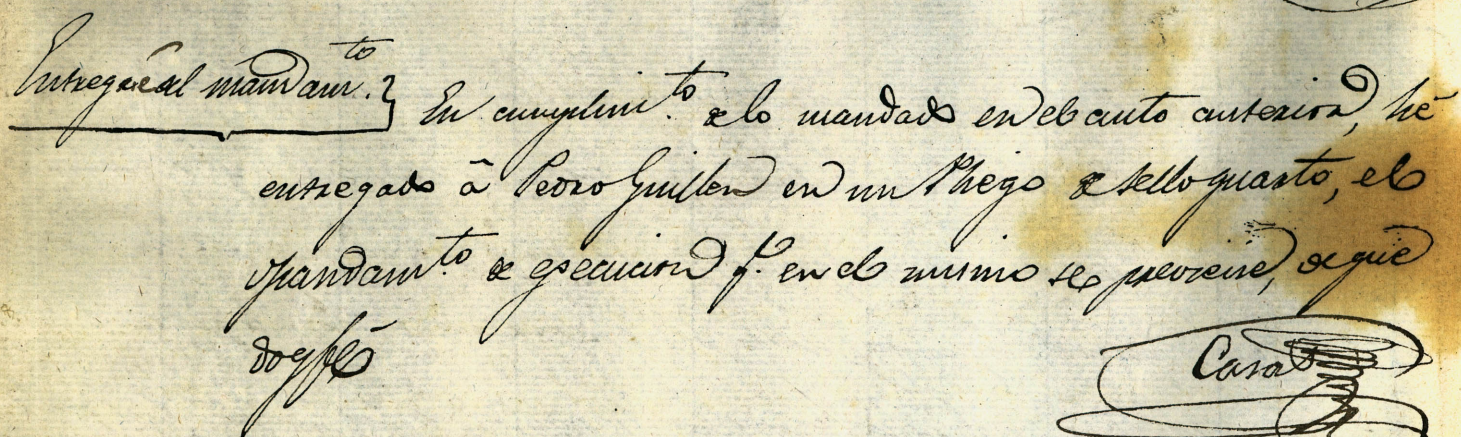 Entregué el mandam.to
En cumplim.to de lo mandado en el auto anterior, hé
entregado â Pedro Guillen en un Pliego de sello quarto, el
Mandam.to de egecucion q.e en el mismo se previene, de que
doy fé
Casas